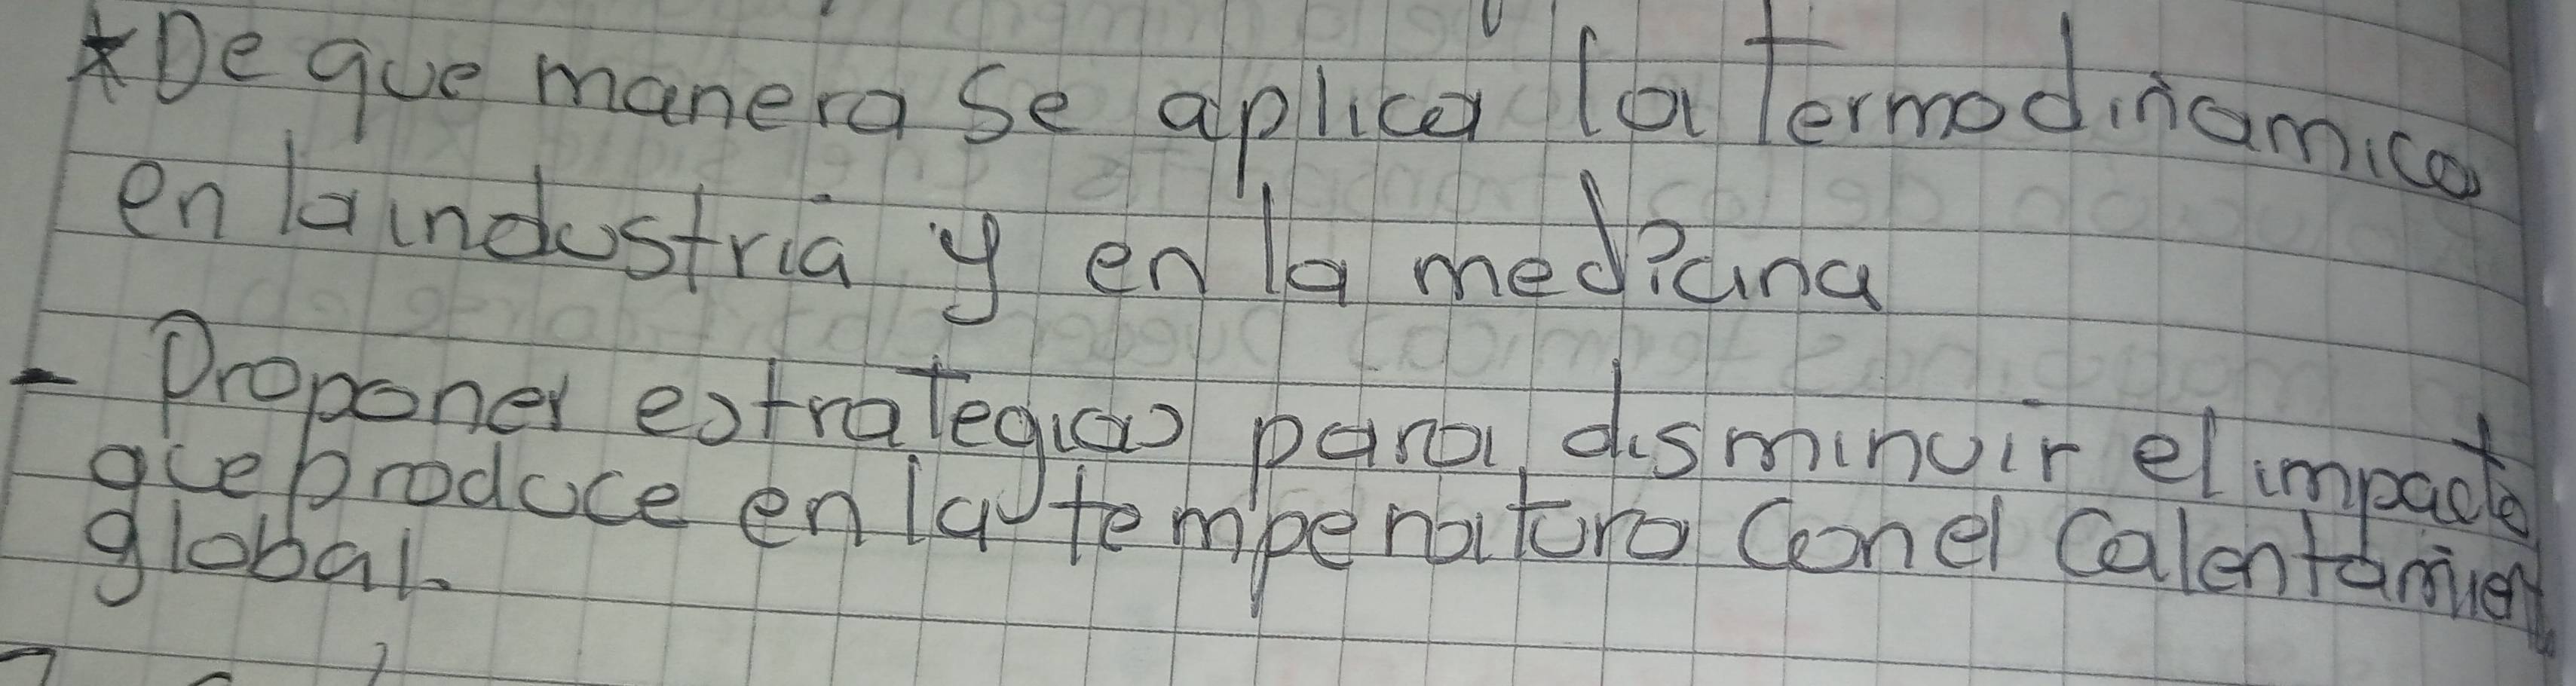 *De que manera se aplica la Termodinamica
en la industria y en la medicina
- Proponer estrategias para disminuir el impacto
que produce en la temperatura con el calentamiento
global.